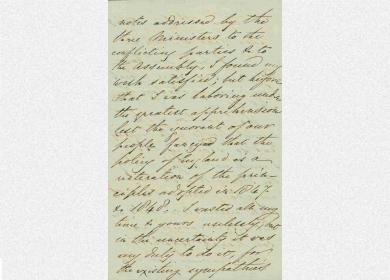 notes addressed by the
three Ministers to the
conflicting parties & to
the Assembly, I found my
wish satisfied; but before
that I was laboring under
the greatest apprehension
lest the ignorant of our
people fancyed that the
policy of England is a
reiteration of the prin-
ciples adopted in 1847
& 1848. I wasted all my
time & yours uselessly, but
in the uncertainty it was
my duty to do it, for
the existing sympathies